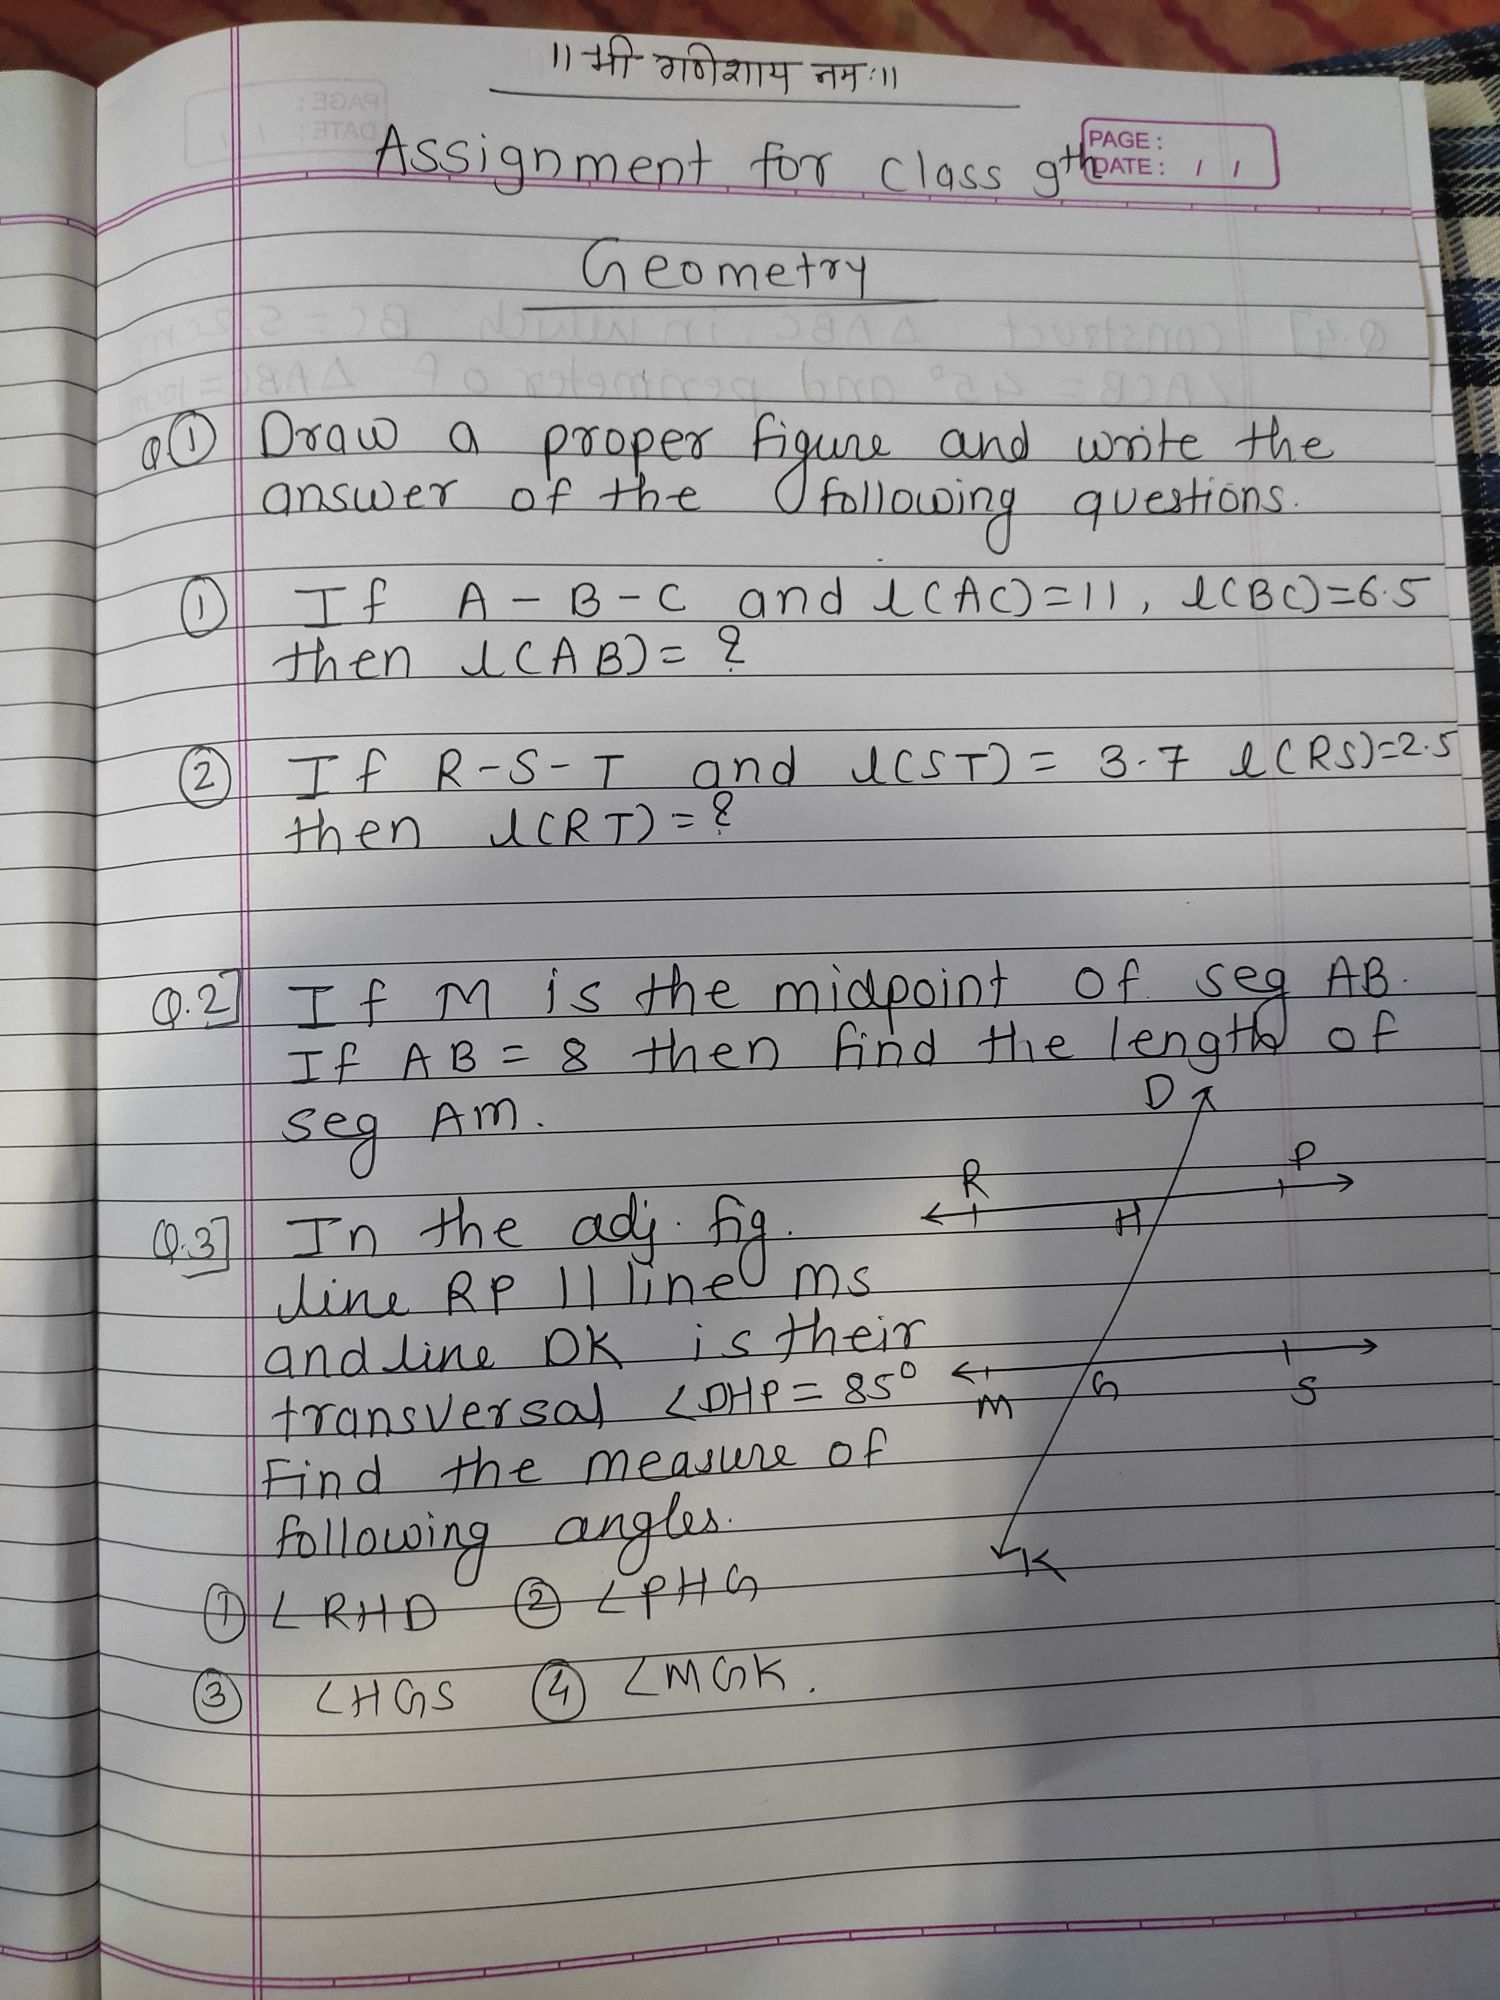 ।। श्री गणेशाय नमः ।।
PAGE :
DATE : / /
Assignment for class 9th
Geometry
Q① Draw a proper figure and write the
answer of the following questions.
① If A - B - C and l(AC)=11, l(BC)=6.5
then l(AB)= ?
② If R-S-T and l(ST)= 3.7 l(RS)=2.5
then l(RT)=?
Q.2] If M is the midpoint of seg AB.
If AB = 8 then find the length of
seg AM.
Q.3] In the adj. fig.
line RP || line MS
and line DK is their
transversal ∠DHP = 85°
Find the measure of
following angles.
① ∠RHD ② ∠PHG
③ ∠HGS ④ ∠MGK.
D
R P
H
M G S
K
Q.4] construct △ABC in which BC = 5.2cm
∠ACB = 45° and perimeter of △ABC = 10cm
PAGE :
DATE : / /